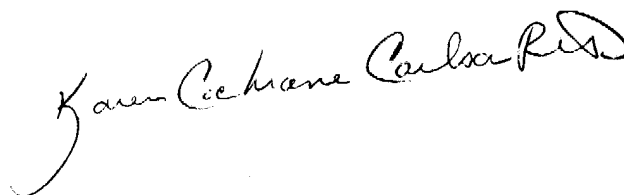 Karen Cochrane Carlson